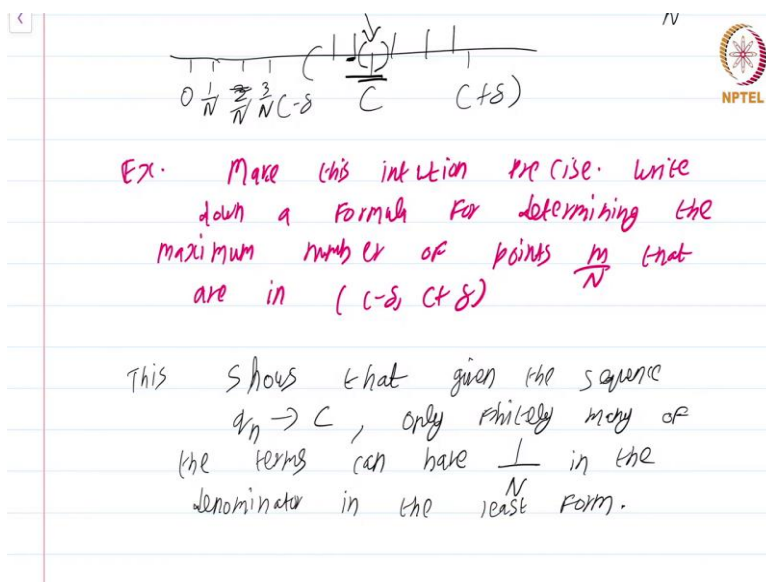 N
0 1/N 2/N 3/N C-δ C C+δ)
NPTEL
Ex. Make this intution precise. Write
down a formula for determining the
maximum number of points m/N that
are in (C-δ, C+δ)
This shows that given the sequence
qₙ → C, only finitely many of
the terms can have 1/N in the
denominator in the least form.